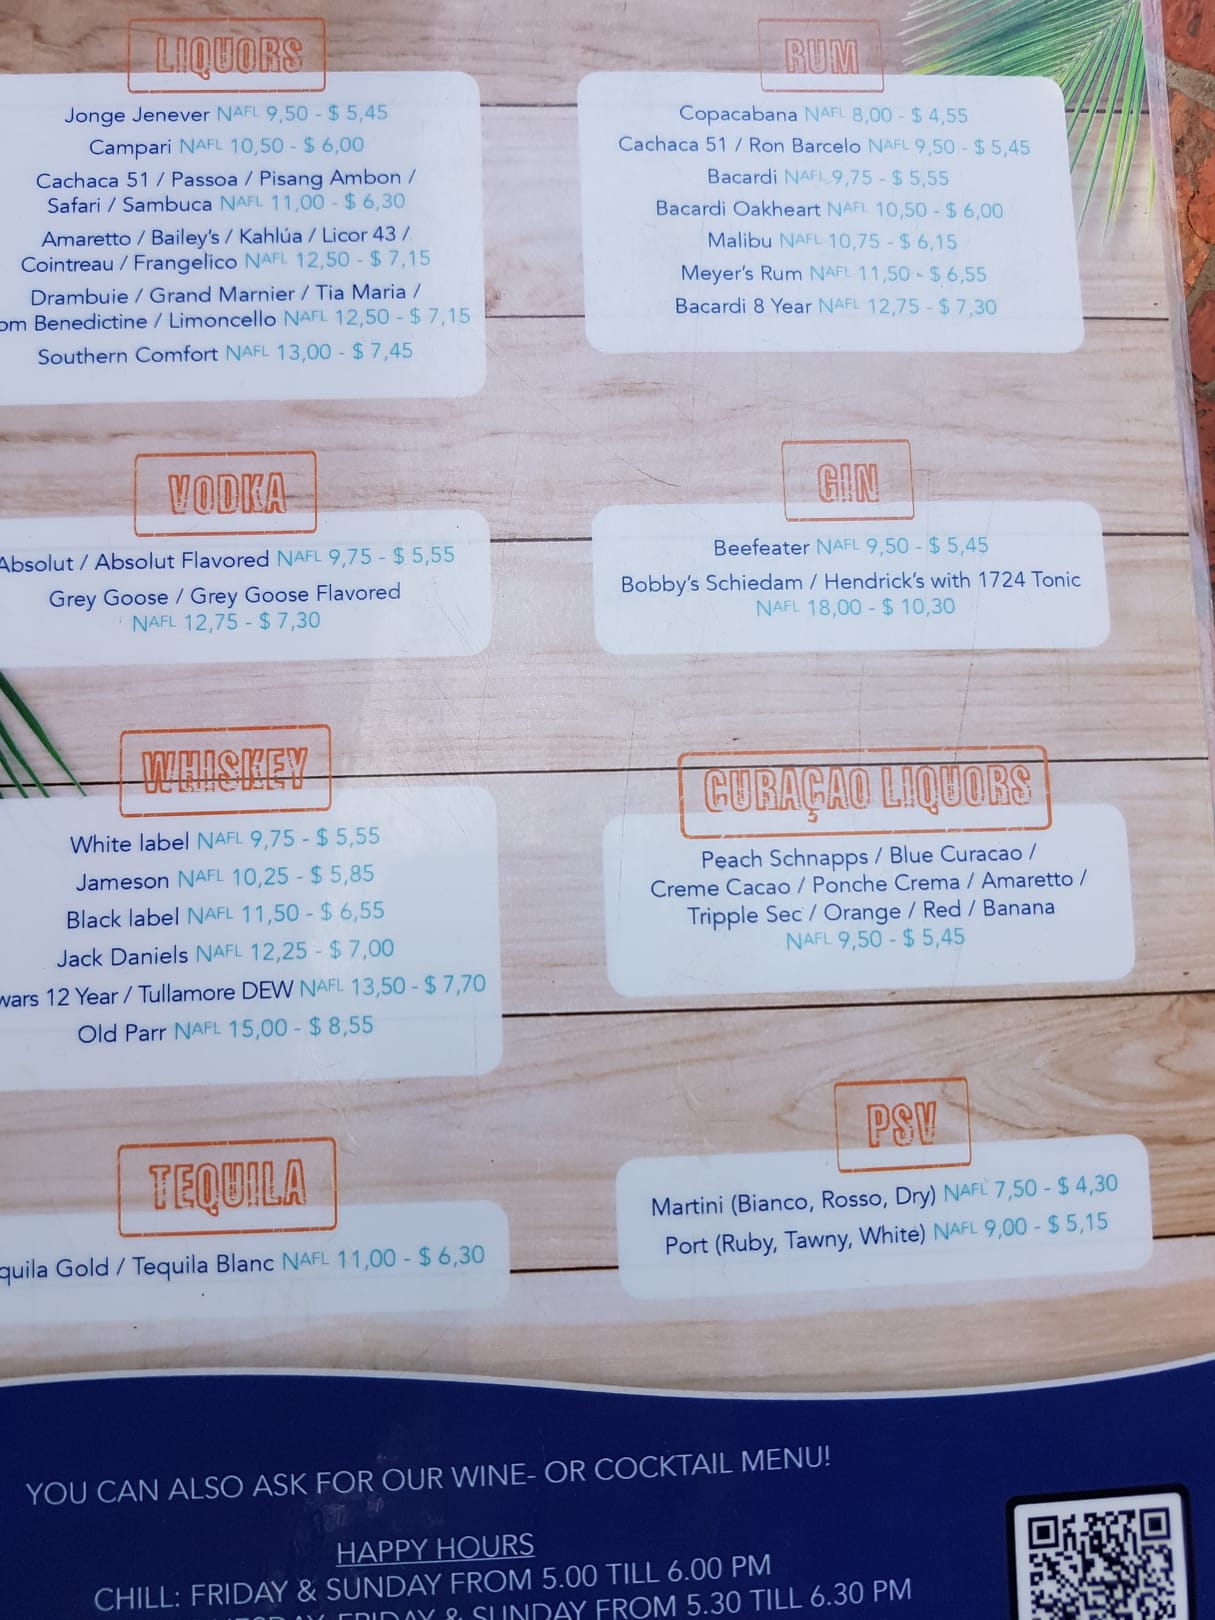 LIQUORS
Jonge Jenever NAFL 9,50 - $ 5,45
Campari NAFL 10,50 - $ 6,00
Cachaca 51 / Passoa / Pisang Ambon /
Safari / Sambuca NAFL 11,00 - $ 6,30
Amaretto / Bailey's / Kahlúa / Licor 43 /
Cointreau / Frangelico NAFL 12,50 - $ 7,15
Drambuie / Grand Marnier / Tia Maria /
Benedictine / Limoncello NAFL 12,50 - $ 7,15
Southern Comfort NAFL 13,00 - $ 7,45
RUM
Copacabana NAFL 8,00 - $ 4,55
Cachaca 51 / Ron Barcelo NAFL 9,50 - $ 5,45
Bacardi NAFL 9,75 - $ 5,55
Bacardi Oakheart NAFL 10,50 - $ 6,00
Malibu NAFL 10,75 - $ 6,15
Meyer's Rum NAFL 11,50 - $ 6,55
Bacardi 8 Year NAFL 12,75 - $ 7,30
VODKA
Absolut / Absolut Flavored NAFL 9,75 - $ 5,55
Grey Goose / Grey Goose Flavored
NAFL 12,75 - $ 7,30
GIN
Beefeater NAFL 9,50 - $ 5,45
Bobby's Schiedam / Hendrick's with 1724 Tonic
NAFL 18,00 - $ 10,30
WHISKEY
White label NAFL 9,75 - $ 5,55
Jameson NAFL 10,25 - $ 5,85
Black label NAFL 11,50 - $ 6,55
Jack Daniels NAFL 12,25 - $ 7,00
12 Year / Tullamore DEW NAFL 13,50 - $ 7,70
Old Parr NAFL 15,00 - $ 8,55
CURAÇAO LIQUORS
Peach Schnapps / Blue Curacao /
Creme Cacao / Ponche Crema / Amaretto /
Tripple Sec / Orange / Red / Banana
NAFL 9,50 - $ 5,45
TEQUILA
Gold / Tequila Blanc NAFL 11,00 - $ 6,30
PSV
Martini (Bianco, Rosso, Dry) NAFL 7,50 - $ 4,30
Port (Ruby, Tawny, White) NAFL 9,00 - $ 5,15
YOU CAN ALSO ASK FOR OUR WINE- OR COCKTAIL MENU!
HAPPY HOURS
CHILL: FRIDAY & SUNDAY FROM 5.00 TILL 6.00 PM
FRIDAY & SUNDAY FROM 5.30 TILL 6.30 PM